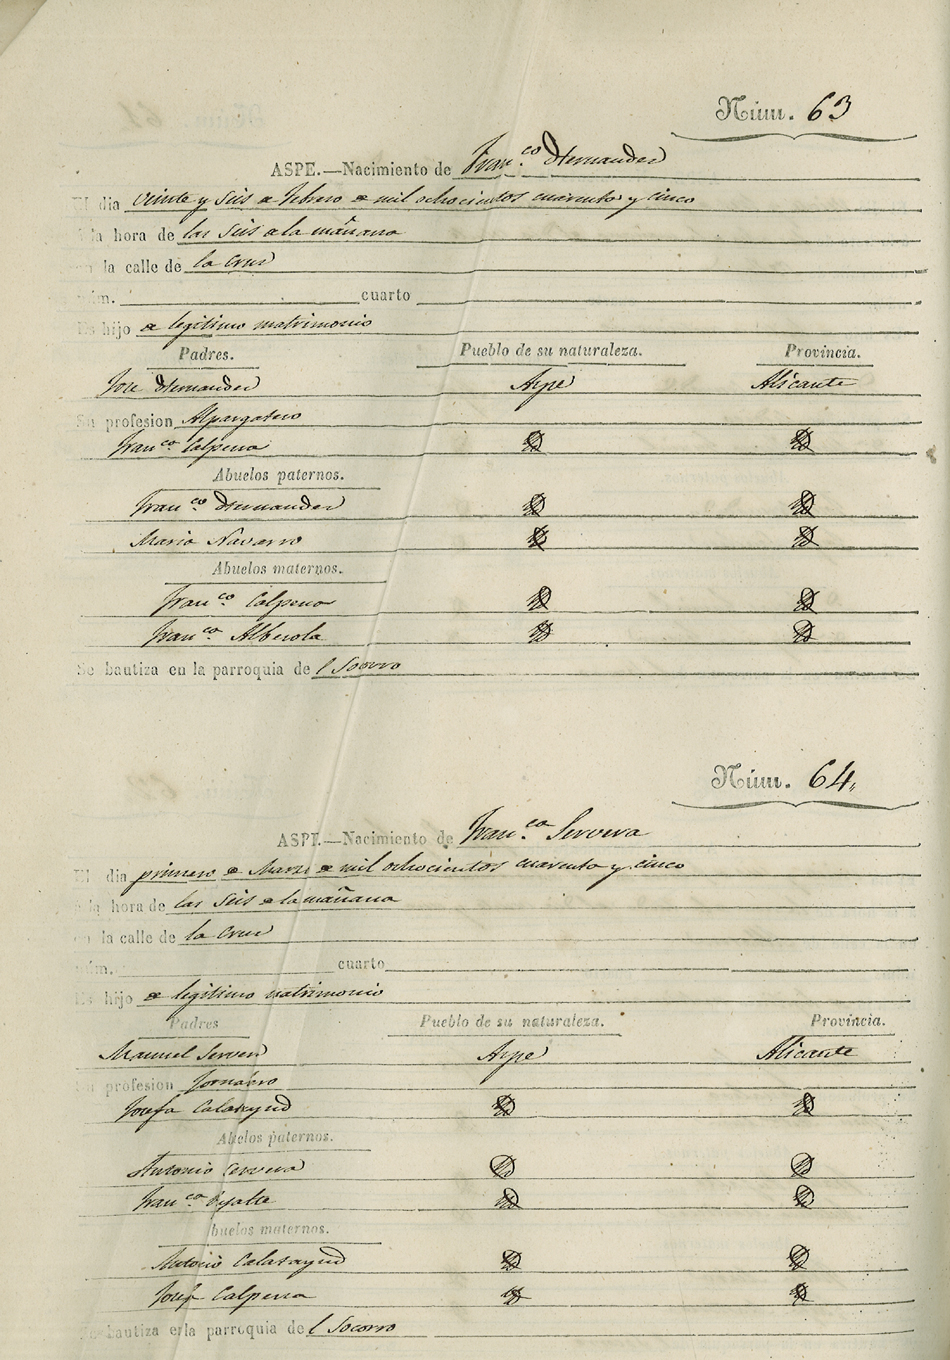 Núm. 63
ASPE.—Nacimiento de Fran.co Hernandez
El dia veinte y seis de febrero de mil ochocientos cuarenta y cinco
á la hora de las seis de la mañana
en la calle de la Cruz
núm. cuarto
Es hijo de legitimo matrimonio
Padres. Pueblo de su naturaleza. Provincia.
Jose Hernandez Aspe Alicante
Su profesion Alpargatero
Fran.ca Calpena
Abuelos paternos.
Fran.co Hernandez
Maria Navarro
Abuelos maternos.
Fran.co Calpena
Fran.ca Alberola
Se bautiza en la parroquia del Socorro
Núm. 64
ASPE.—Nacimiento de Fran.ca Servera
El dia primero de Marzo de mil ochocientos cuarenta y cinco
á la hora de las seis de la mañana
en la calle de la Cruz
núm. cuarto
Es hijo de legitimo matrimonio
Padres Pueblo de su naturaleza. Provincia.
Manuel Aspe Alicante
Su profesion Jornalero
Josefa Calatayud
Abuelos paternos.
Antonio Cervera
Fran.ca
Abuelos maternos.
Antonio Calatayud
Josefa Calpena
Se bautiza en la parroquia del Socorro